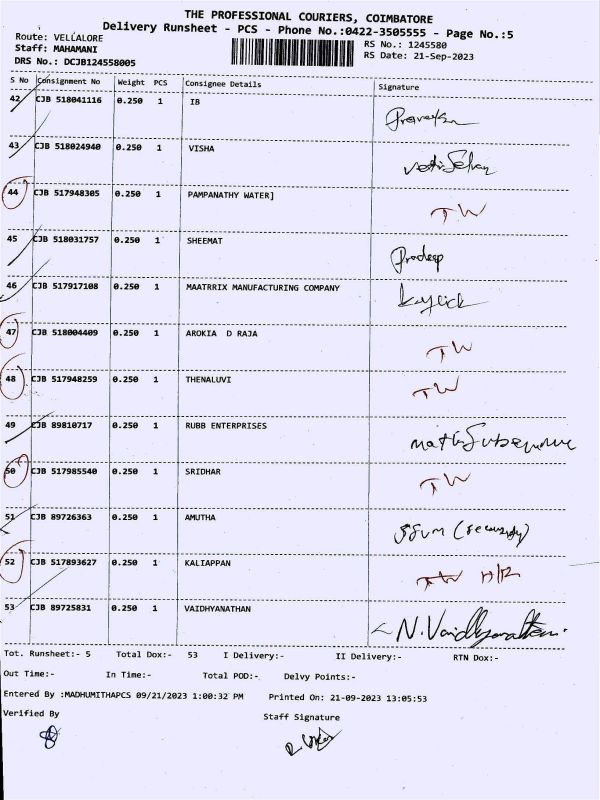 THE PROFESSIONAL COURIERS, COIMBATORE
Delivery Runsheet - PCS - Phone No.:0422-3505555 - Page No.:5
Route: VELLALORE
RS No.: 1245580
Staff: MAHAMANI
RS Date: 21-Sep-2023
DRS No.: DCJB124558005
S No Consignment No Weight PCS Consignee Details Signature
42 CJB 518041116 0.250 1 IB
43 CJB 518024940 0.250 1 VISHA
44 CJB 517948305 0.250 1 PAMPANATHY WATER] TW
45 CJB 518031757 0.250 1 SHEEMAT Pradeep
46 CJB 517917108 0.250 1 MAATRRIX MANUFACTURING COMPANY
47 CJB 518004409 0.250 1 AROKIA D RAJA TW
48 CJB 517948259 0.250 1 THENALUVI TW
49 CJB 89810717 0.250 1 RUBB ENTERPRISES
50 CJB 517985540 0.250 1 SRIDHAR TW
51 CJB 89726363 0.250 1 AMUTHA (security)
52 CJB 517893627 0.250 1 KALIAPPAN TW
53 CJB 89725831 0.250 1 VAIDHYANATHAN N.Vaidhyanathan.
Tot. Runsheet:- 5 Total Dox:- 53 I Delivery:- II Delivery:- RTN Dox:-
Out Time:- In Time:- Total POD:- Delvy Points:-
Entered By :MADHUMITHAPCS 09/21/2023 1:00:32 PM Printed On: 21-09-2023 13:05:53
Verified By Staff Signature